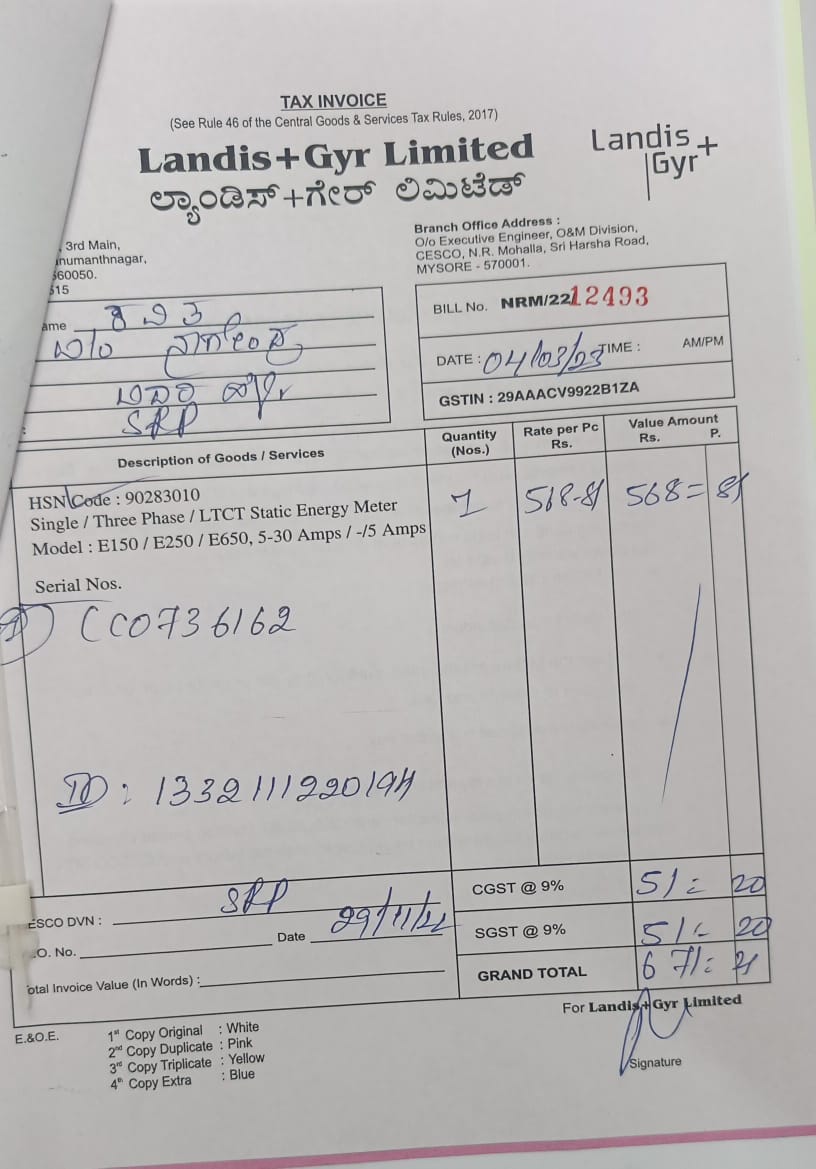 TAX INVOICE
(See Rule 46 of the Central Goods & Services Tax Rules, 2017)
Landis+Gyr Limited
ಲ್ಯಾಂಡಿಸ್+ಗೇರ್ ಲಿಮಿಟೆಡ್
Landis+
Gyr
, 3rd Main,
numanthnagar,
560050.
515
Branch Office Address :
O/o Executive Engineer, O&M Division,
CESCO, N.R. Mohalla, Sri Harsha Road,
MYSORE - 570001.
ame ರವಿ
SRP
BILL No. NRM/22/12493
DATE : 04/03/23 TIME : AM/PM
GSTIN : 29AAACV9922B1ZA
Description of Goods / Services Quantity (Nos.) Rate per Pc Rs. Value Amount Rs. P.
HSN Code : 90283010 1 568-81 568= 81
Single / Three Phase / LTCT Static Energy Meter
Model : E150 / E250 / E650, 5-30 Amps / -/5 Amps
Serial Nos.
CC0736162
ID : 1332111220194
ESCO DVN : SRP CGST @ 9% 51= 20
.O. No. Date 29/11/22 SGST @ 9% 51= 20
otal Invoice Value (In Words) : GRAND TOTAL 671= 21
For Landis+Gyr Limited
Signature
E.&O.E.
1st Copy Original : White
2nd Copy Duplicate : Pink
3rd Copy Triplicate : Yellow
4th Copy Extra : Blue